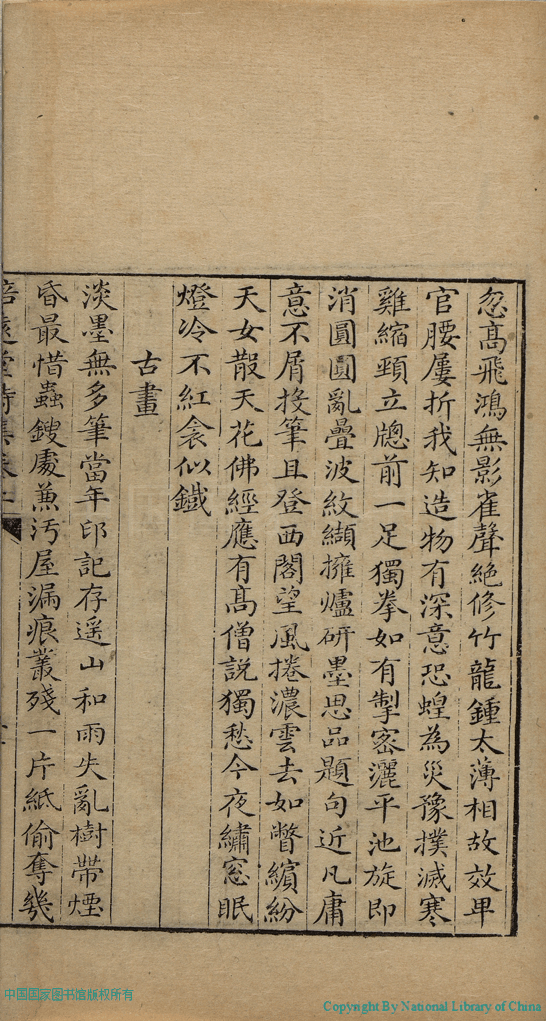 忽高飛鴻無影雀聲絶修竹龍鍾太薄相故效卑
官腰屢折我知造物有深意恐蝗為災豫撲滅寒
雞縮頸立牕前一足獨拳如有掣密灑平池旋即
消圓圓亂疊波紋纈擁爐研墨思品題句近凡庸
意不屑投筆且登西閣望風捲濃雲去如瞥繽紛
天女散天花佛經應有髙僧説獨愁今夜繡窓眠
燈冷不紅衾似鐵
古畫
淡墨無多筆當年印記存遥山和雨失亂樹帶煙
昏最惜蟲鎪處兼汚屋漏痕叢殘一片紙偷奪幾
培遠堂詩集卷上
中国国家图书馆版权所有
Copyright By National Library of China